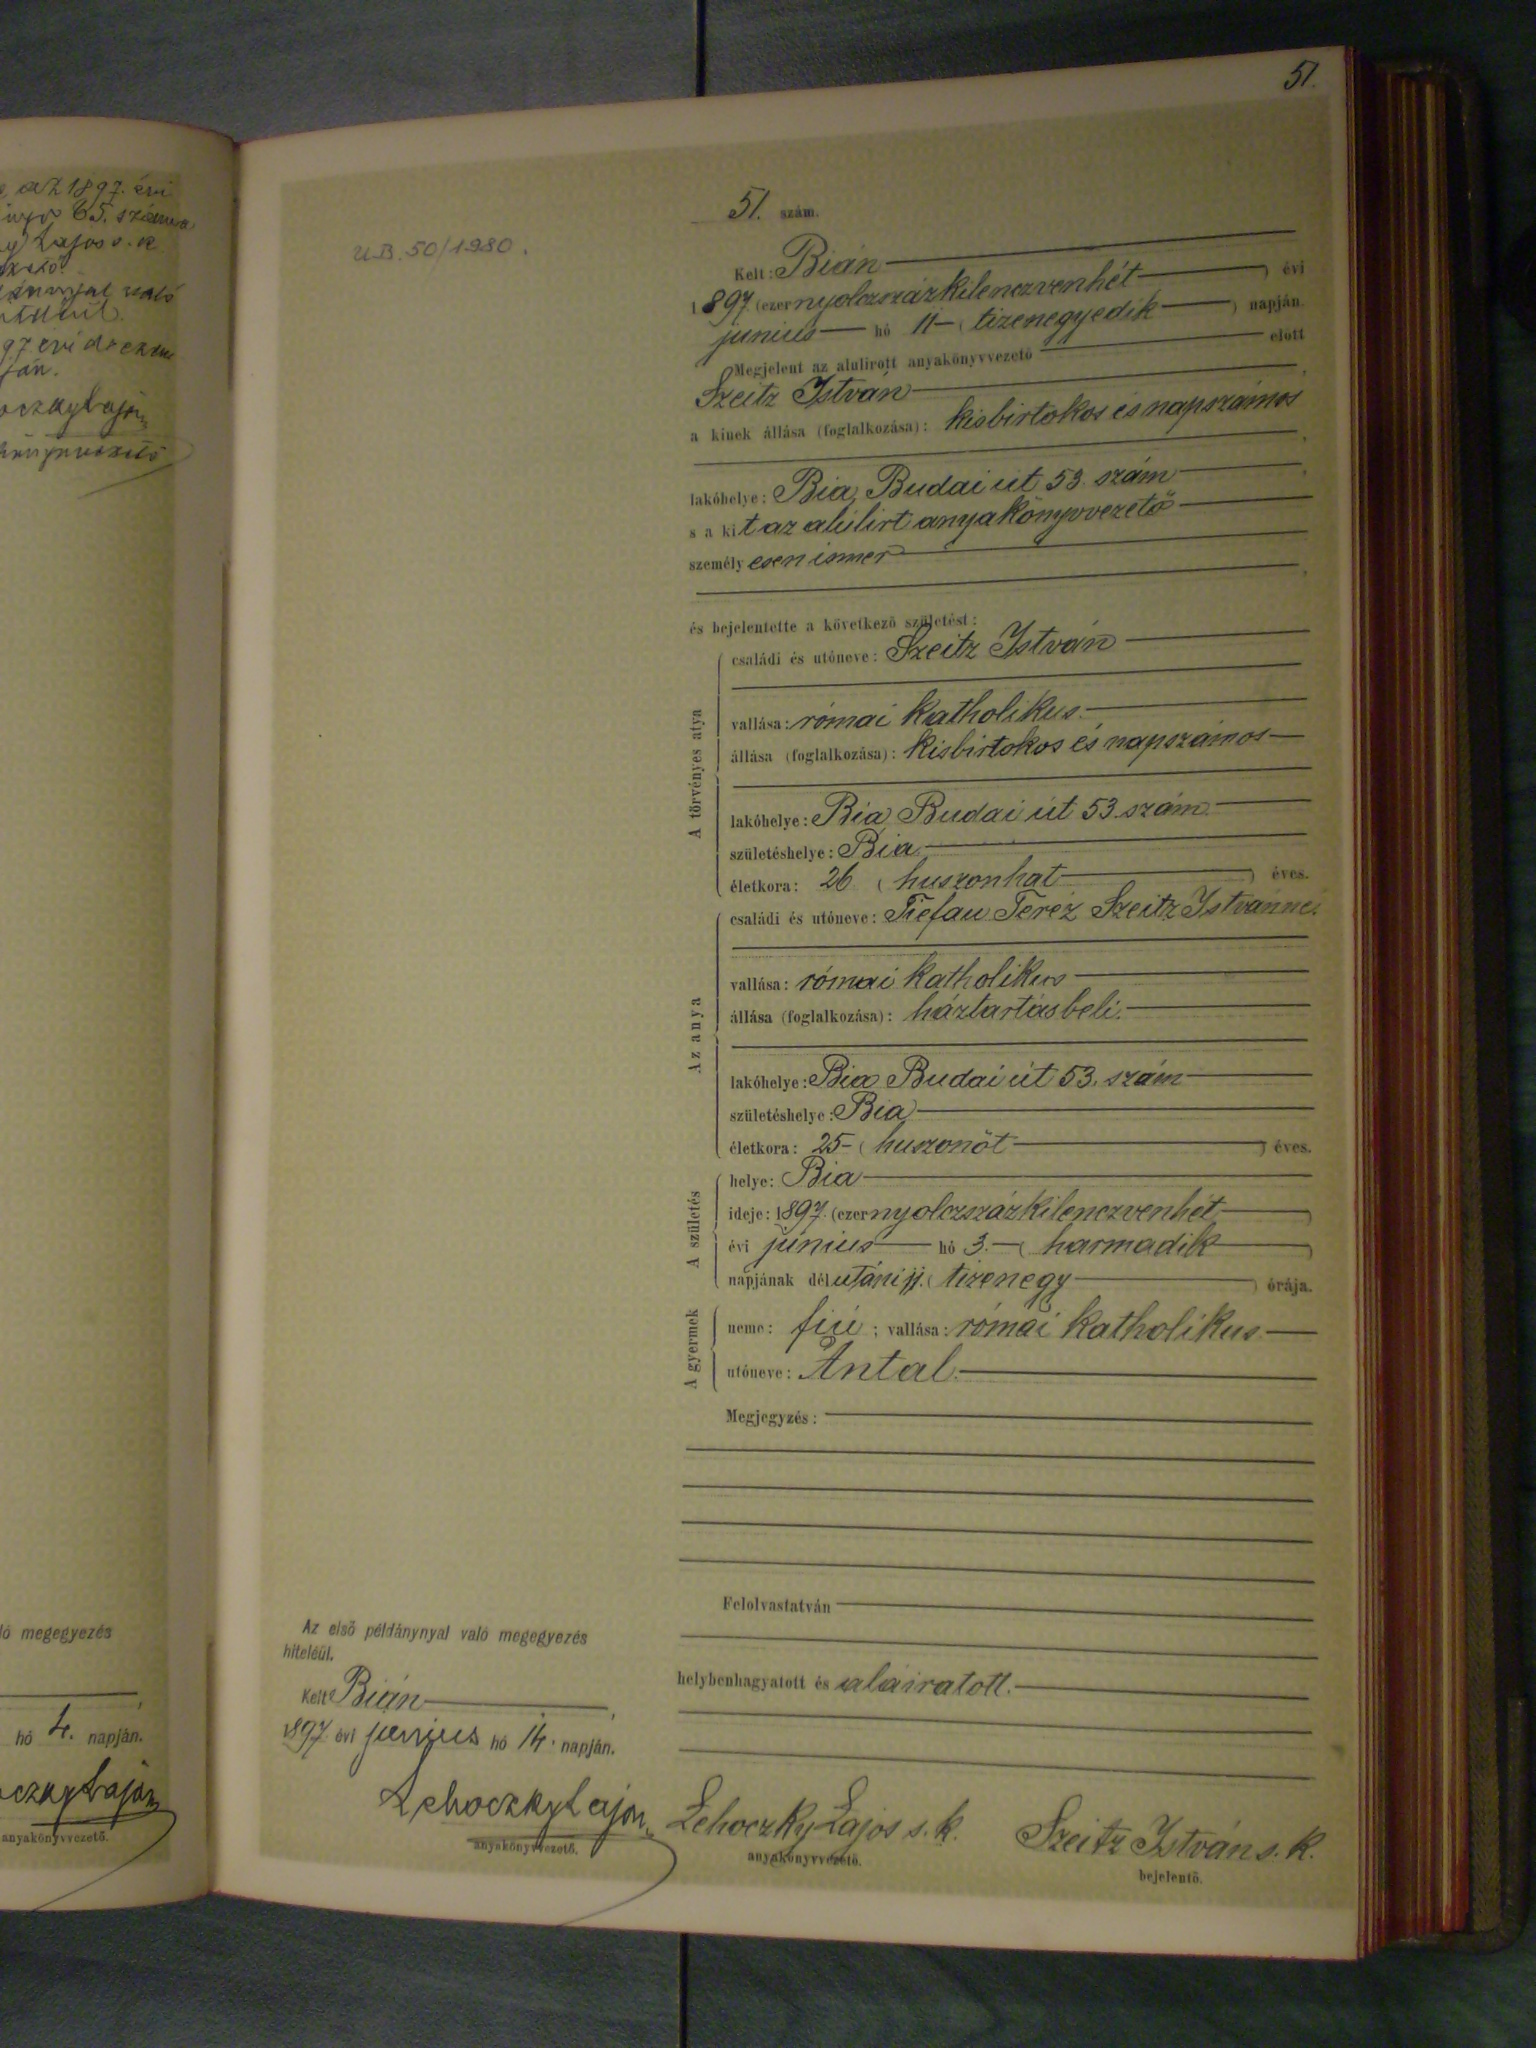 51.
az 1897. évi
65. száma
Lajos s. k.
való
97 évi
hó 4. napján.
anyakönyvvezető.
ló megegyezés
U.B. 50/1980.
51. szám.
Kelt: Bián
1897. (ezernyolczszázkilenczvenhét) évi
junius hó 11- (tizenegyedik) napján.
Megjelent az alulirott anyakönyvvezető előtt
Szeitz István,
a kinek állása (foglalkozása): kisbirtokos és napszámos
lakóhelye: Bia, Budai út 53. szám
s a kit az alúlirt anyakönyvvezető
személyesen ismer
és bejelentette a következő születést:
A törvényes atya
családi és utóneve: Szeitz István
vallása: római katholikus.
állása (foglalkozása): kisbirtokos és napszámos
lakóhelye: Bia, Budai út 53. szám
születéshelye: Bia
életkora: 26 (huszonhat) éves.
Az anya
családi és utóneve: Tiefau Teréz Szeitz Istvánné.
vallása: római katholikus
állása (foglalkozása): háztartásbeli.
lakóhelye: Bia, Budai út 53. szám
születéshelye: Bia
életkora: 25- (huszonöt) éves.
A születés
helye: Bia
ideje: 1897. (ezernyolczszázkilenczvenhét)
évi június hó 3.- (harmadik)
napjának délutáni 11. (tizenegy) órája.
A gyermek
neme: fiú; vallása: római katholikus.
utóneve: Antal.
Megjegyzés:
Felolvastatván
helybenhagyatott és aláiratott.
Lehoczky Lajos s. k.
anyakönyvvezető.
Szeitz István s. k.
bejelentő.
Az első példánynyal való megegyezés
hiteléül.
Kelt Bián,
1897. évi junius hó 14. napján.
Lehoczky Lajos
anyakönyvvezető.